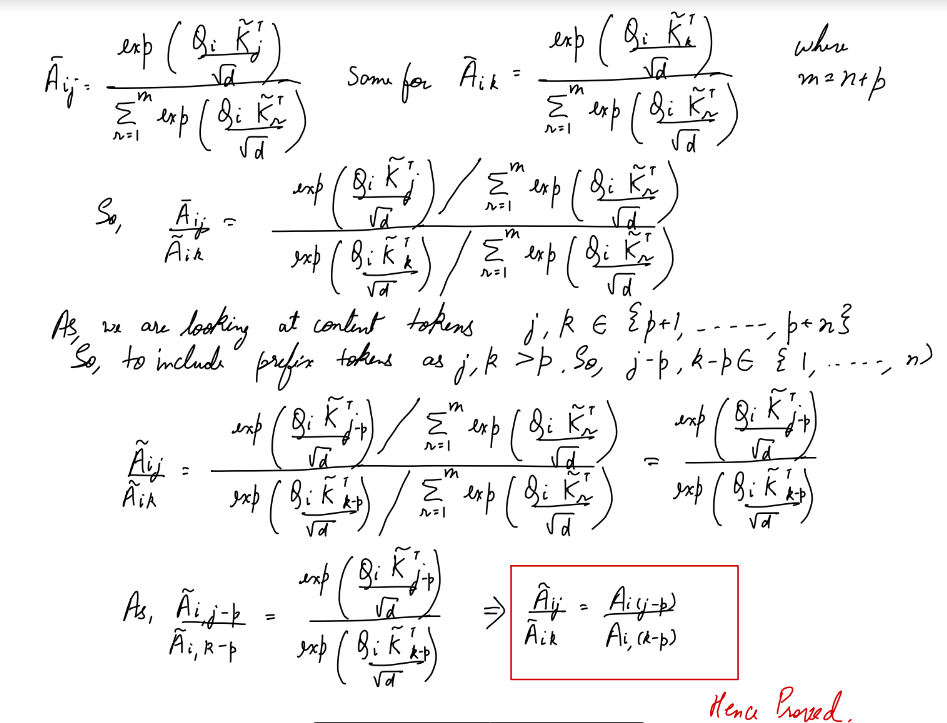 Āij = exp(Qi K̃j^T / √d) / Σ_{r=1}^{m} exp(Qi K̃r^T / √d) Same for Āik = exp(Qi K̃k^T / √d) / Σ_{r=1}^{m} exp(Qi K̃r^T / √d) where m = n+p
So, Āij / Ãik = [exp(Qi K̃j^T / √d) / Σ_{r=1}^{m} exp(Qi K̃r^T / √d)] / [exp(Qi K̃k^T / √d) / Σ_{r=1}^{m} exp(Qi K̃r^T / √d)]
As, we are looking at content tokens j, k ∈ {p+1, -----, p+n}
So, to include prefix tokens as j, k > p. So, j-p, k-p ∈ {1, -----, n)
Ãij / Ãik = [exp(Qi K̃j-p^T / √d) / Σ_{r=1}^{m} exp(Qi K̃r^T / √d)] / [exp(Qi K̃k-p^T / √d) / Σ_{r=1}^{m} exp(Qi K̃r^T / √d)] = exp(Qi K̃j-p^T / √d) / exp(Qi K̃k-p^T / √d)
As, Ãi,j-p / Ãi,k-p = exp(Qi K̃j-p^T / √d) / exp(Qi K̃k-p^T / √d) ⇒ Ãij / Ãik = Ai(j-p) / Ai,(k-p)
Hence Proved.